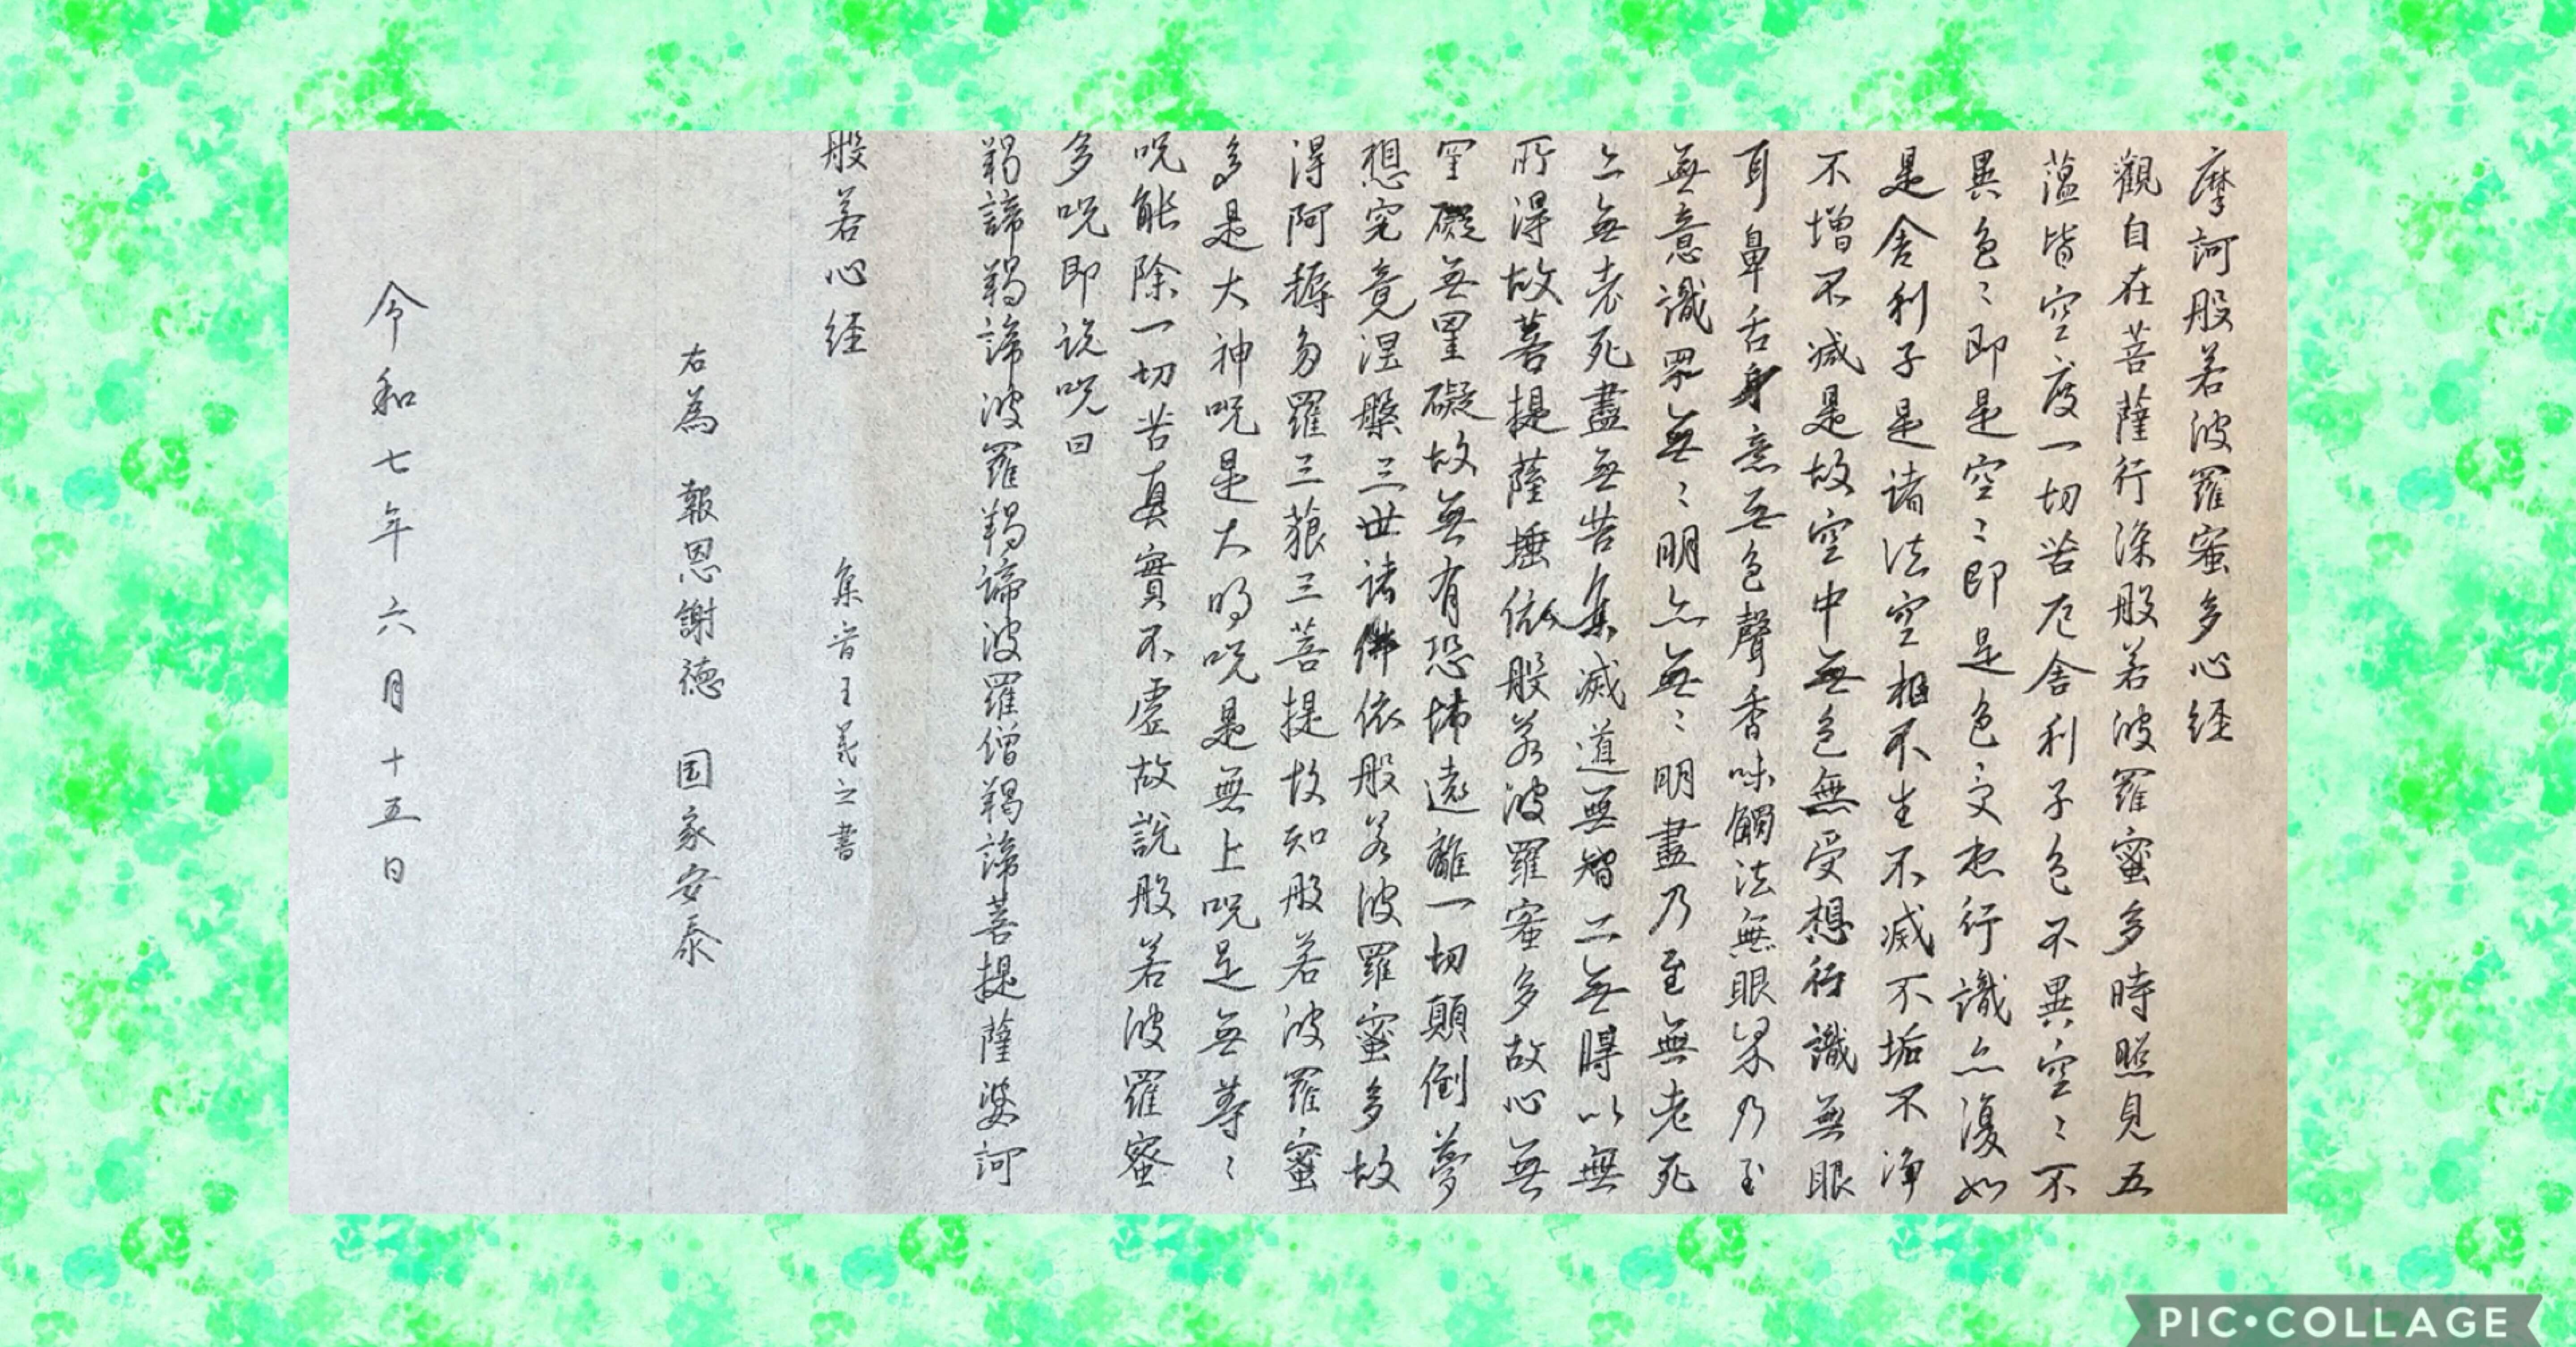 摩訶般若波羅蜜多心経
觀自在菩薩行深般若波羅蜜多時照見五
蕰皆空度一切苦厄舎利子色不異空〻不
異色〻即是空〻即是色受想行識亦復如
是舎利子是諸法空相不生不滅不垢不浄
不増不減是故空中無色無受想行識無眼
耳鼻舌身意无色聲香味觸法無眼界乃至
無意識界無〻明亦無〻明盡乃至無老死
亦無老死盡無苦集滅道無智亦無得以無
所得故菩提薩埵依般若波羅蜜多故心無
罣礙無罣礙故無有恐怖遠離一切顛倒夢
想究竟涅槃三世諸佛依般若波羅蜜多故
得阿耨多羅三藐三菩提故知般若波羅蜜
多是大神呪是大明呪是無上呪是無等〻
呪能除一切苦真實不虚故説般若波羅蜜
多呪即説呪曰
羯諦羯諦波羅羯諦波羅僧羯諦菩提薩婆訶
般若心経
集晋王羲之書
右為 報恩謝徳 国家安泰
令和七年六月十五日
PIC•COLLAGE